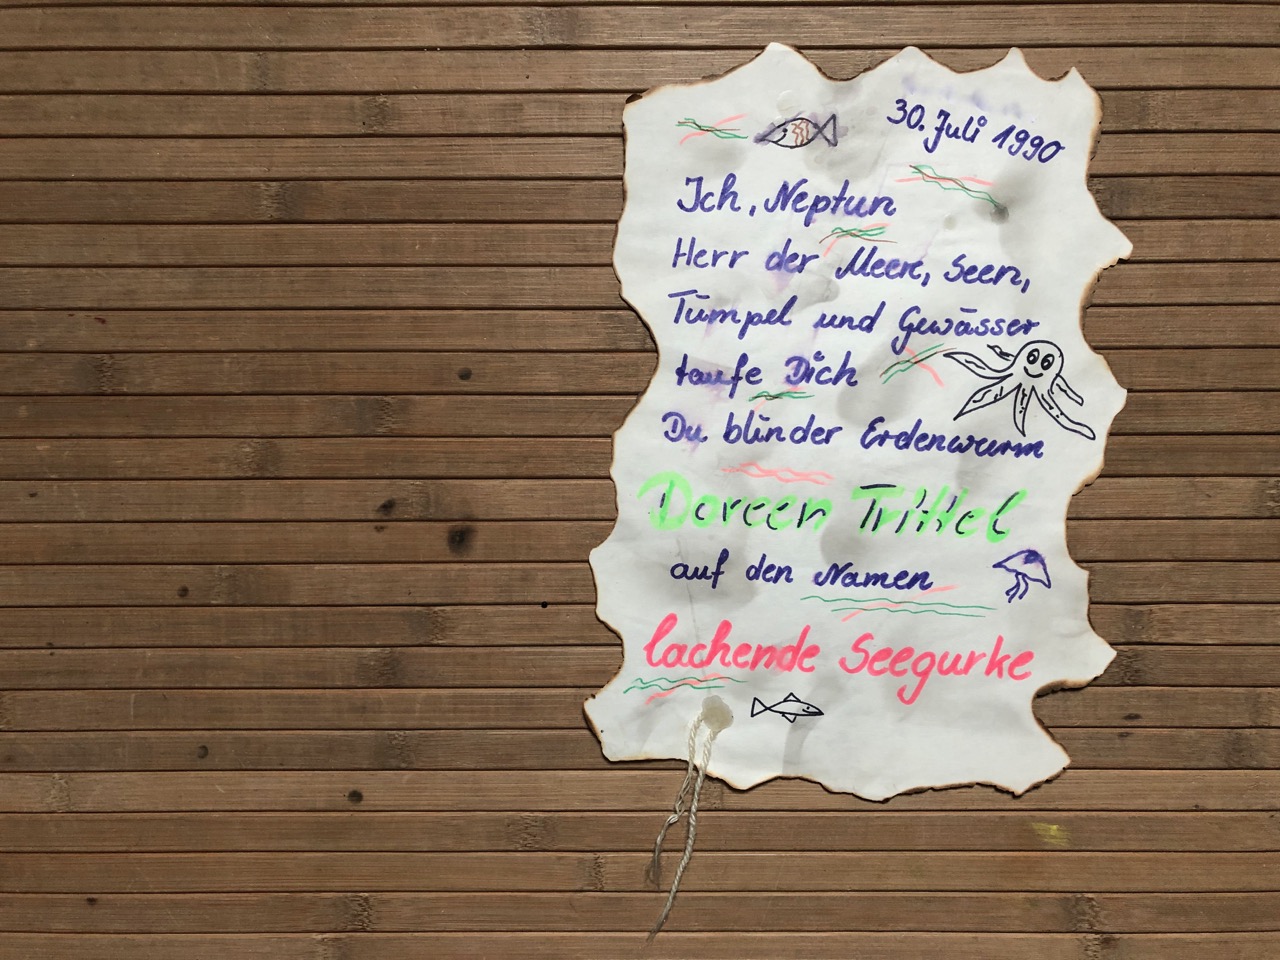 30. Juli 1990
Ich, Neptun
Herr der Meere, Seen,
Tümpel und Gewässer
taufe Dich
Du blinder Erdenwurm
Doreen Trittel
auf den Namen
lachende Seegurke